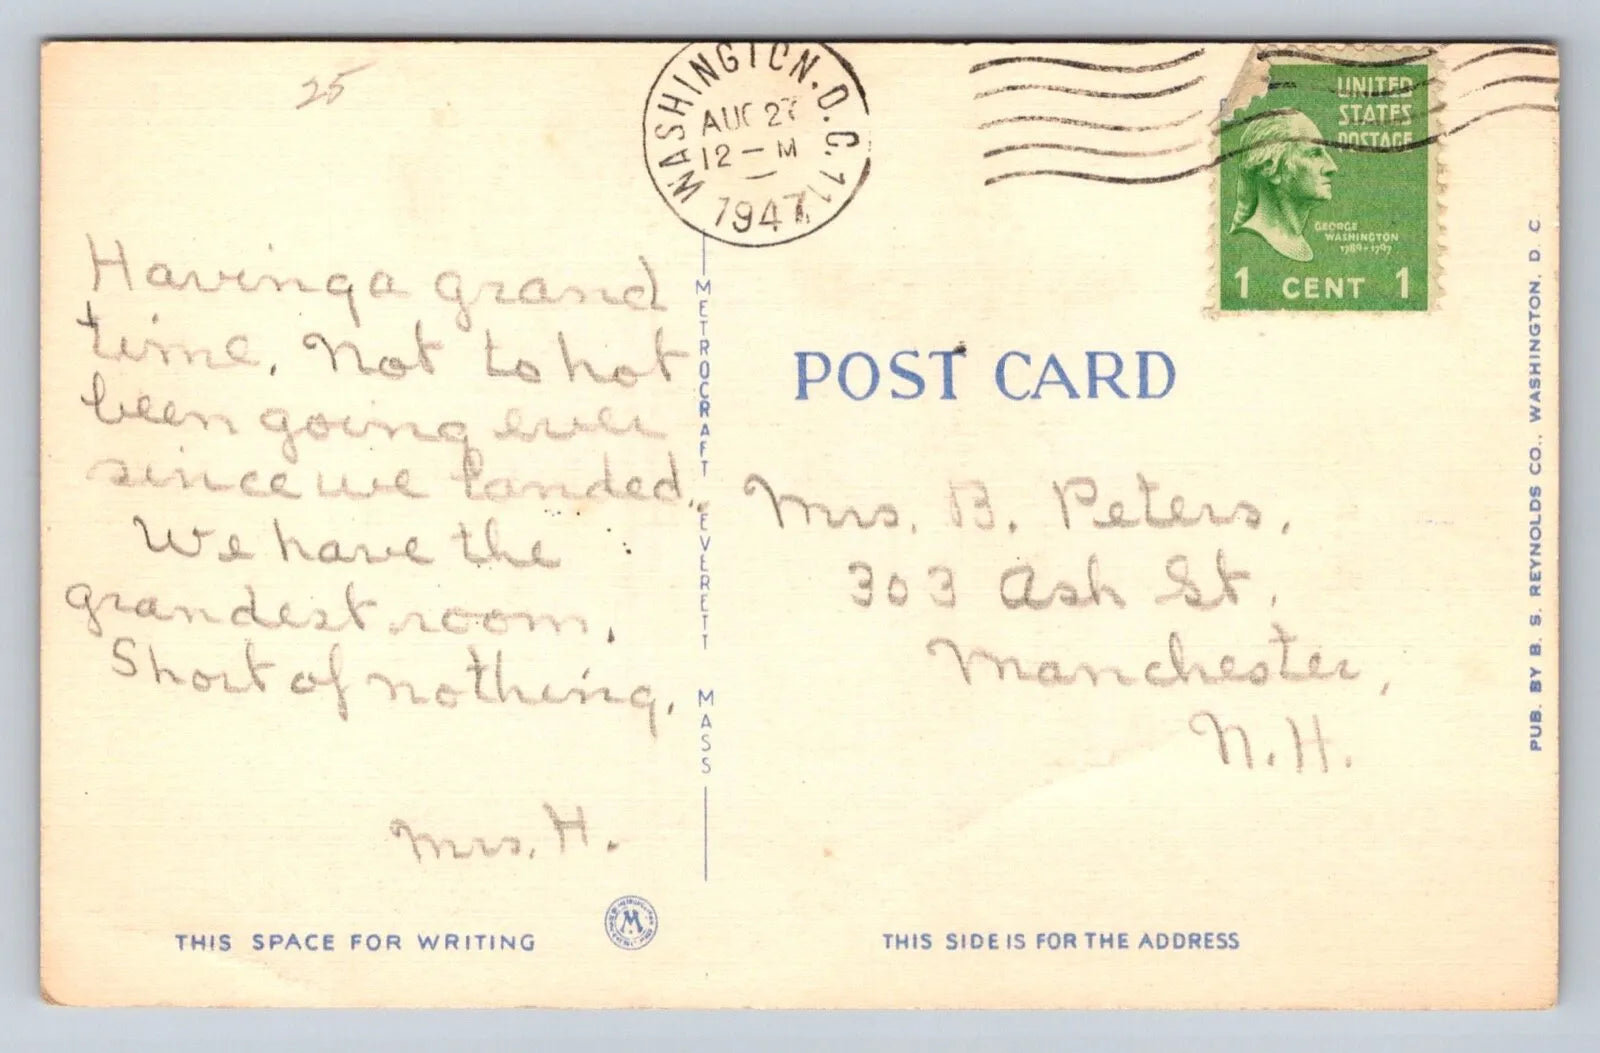 25
WASHINGTON, D.C. 11
AUG 27
12 — M
1947
UNITED
STATES
POSTAGE
GEORGE
WASHINGTON
1789-1797
1 CENT 1
Having a grand
time. Not to hot
been going ever
since we landed.
We have the
grandest room.
Short of nothing.
Mrs. H.
METROCRAFT, EVERETT MASS
POST CARD
Mrs. B. Peters.
303 Ash St.
Manchester,
N. H.
PUB. BY B. S. REYNOLDS CO., WASHINGTON, D. C.
THIS SPACE FOR WRITING
M
THIS SIDE IS FOR THE ADDRESS